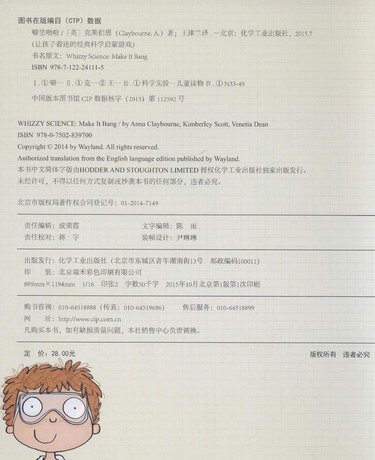 图书在版编目（CIP）数据
噼里啪啦 /［英］克莱伯恩（Claybourne, A.）著；王律兰译. —北京：化学工业出版社，2015.7
（让孩子着迷的经典科学启蒙游戏）
书名原文：Whizzy Science: Make It Bang
ISBN 978-7-122-24111-5
Ⅰ.①噼… Ⅱ.①克…②王… Ⅲ.①科学实验－儿童读物 Ⅳ.①N33-49
中国版本图书馆CIP数据核字（2015）第112592号
WHIZZY SCIENCE: Make It Bang / by Anna Claybourne, Kimberley Scott, Venetia Dean
ISBN 978-0-7502-839700
Copyright © 2014 by Wayland. All rights reserved.
Authorized translation from the English language edition published by Wayland.
本书中文简体字版由HODDER AND STOUGHTON LIMITED授权化学工业出版社独家出版发行。
未经许可，不得以任何方式复制或抄袭本书的任何部分，违者必究。
北京市版权局著作权合同登记号：01-2014-7149
责任编辑：成荣霞 文字编辑：陈 雨
责任校对：蒋 宇 装帧设计：尹琳琳
出版发行：化学工业出版社（北京市东城区青年湖南街13号 邮政编码100011）
印 装：北京瑞禾彩色印刷有限公司
889mm×1194mm 1/16 印张2 字数50千字 2015年10月北京第1版第1次印刷
购书咨询：010-64518888（传真：010-64519686） 售后服务：010-64518899
网 址：http://www.cip.com.cn
凡购买本书，如有缺损质量问题，本社销售中心负责调换。
定 价：28.00元 版权所有 违者必究